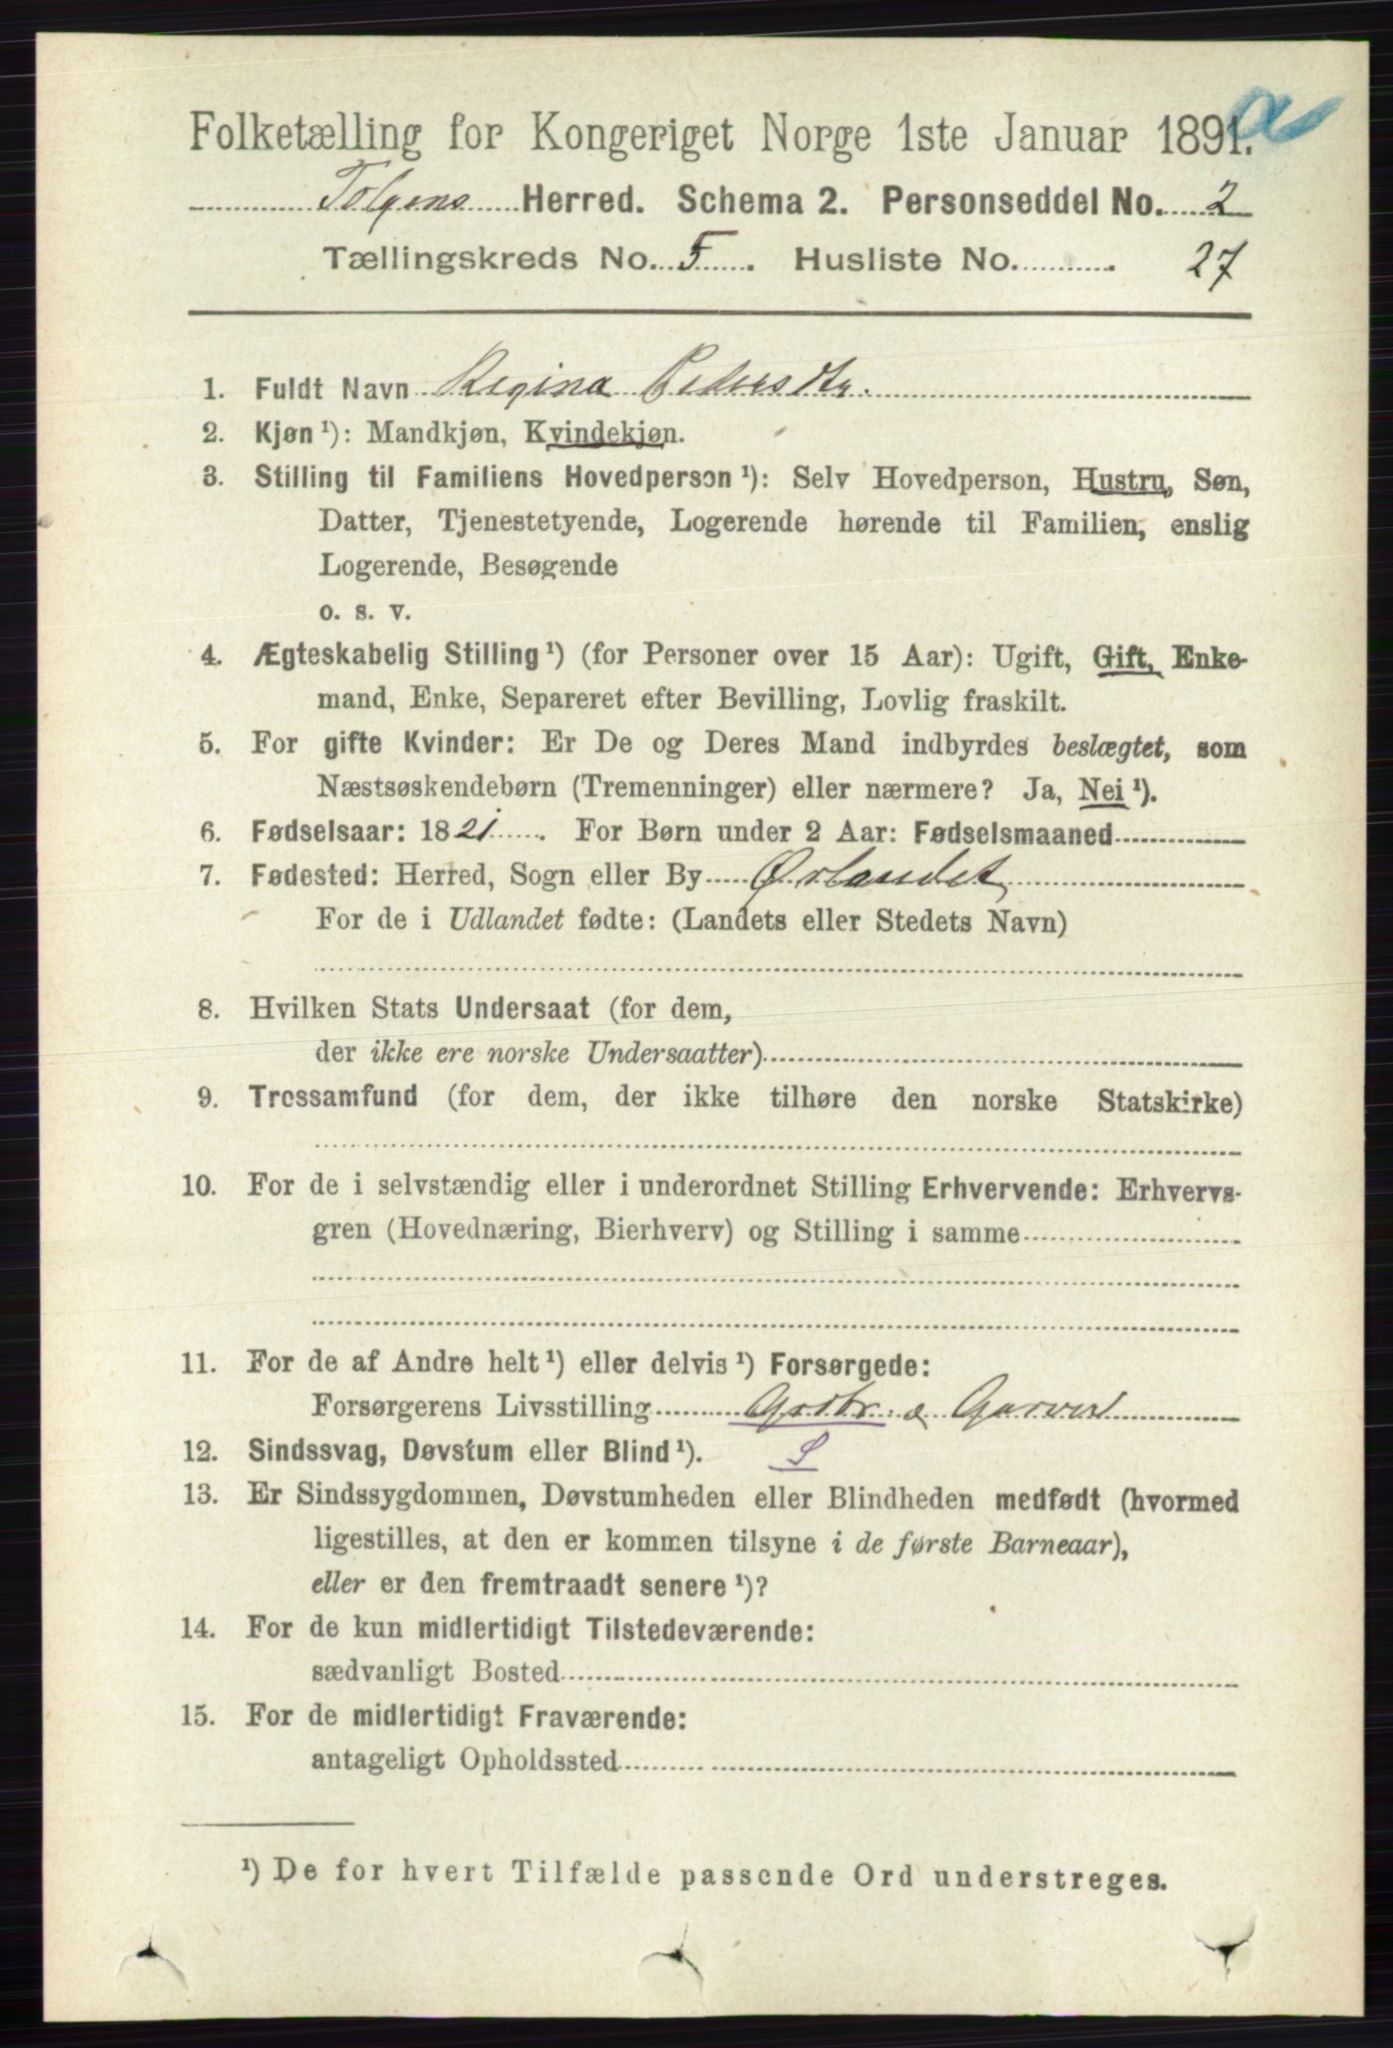 Folketælling for Kongeriget Norge 1ste Januar 1891.
Tolgens Herred. Schema 2. Personseddel No. 2
Tællingskreds No. 5. Husliste No. 27
1. Fuldt Navn Regina Pedersdtr.
2. Kjøn ¹): Mandkjøn, Kvindekjøn.
3. Stilling til Familiens Hovedperson ¹): Selv Hovedperson, Hustru, Søn,
Datter, Tjenestetyende, Logerende hørende til Familien, enslig
Logerende, Besøgende
o. s. v.
4. Ægteskabelig Stilling ¹) (for Personer over 15 Aar): Ugift, Gift, Enke-
mand, Enke, Separeret efter Bevilling, Lovlig fraskilt.
5. For gifte Kvinder: Er De og Deres Mand indbyrdes beslægtet, som
Næstsøskendebørn (Tremenninger) eller nærmere? Ja, Nei ¹).
6. Fødselsaar: 1821. For Børn under 2 Aar: Fødselsmaaned
7. Fødested: Herred, Sogn eller By Ørlandet
For de i Udlandet fødte: (Landets eller Stedets Navn)
8. Hvilken Stats Undersaat (for dem,
der ikke ere norske Undersaatter)
9. Trossamfund (for dem, der ikke tilhøre den norske Statskirke)
10. For de i selvstændig eller i underordnet Stilling Erhvervende: Erhvervs-
gren (Hovednæring, Bierhverv) og Stilling i samme
11. For de af Andre helt ¹) eller delvis ¹) Forsørgede:
Forsørgerens Livsstilling Grdbr. &
12. Sindssvag, Døvstum eller Blind ¹). S
13. Er Sindssygdommen, Døvstumheden eller Blindheden medfødt (hvormed
ligestilles, at den er kommen tilsyne i de første Barneaar),
eller er den fremtraadt senere ¹)?
14. For de kun midlertidigt Tilstedeværende:
sædvanligt Bosted
15. For de midlertidigt Fraværende:
antageligt Opholdssted
¹) De for hvert Tilfælde passende Ord understreges.